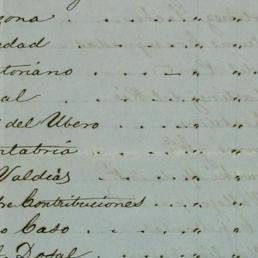 ona . . . . " "
edad . . . . " "
toriano . . . – " "
al . . . . . " "
del Ubero . . . . " "
ntabria . . . . " "
Valdias . . . . " "
re Contribuciones . . " "
o Caso . . . . " "
Dosal . . . . " "